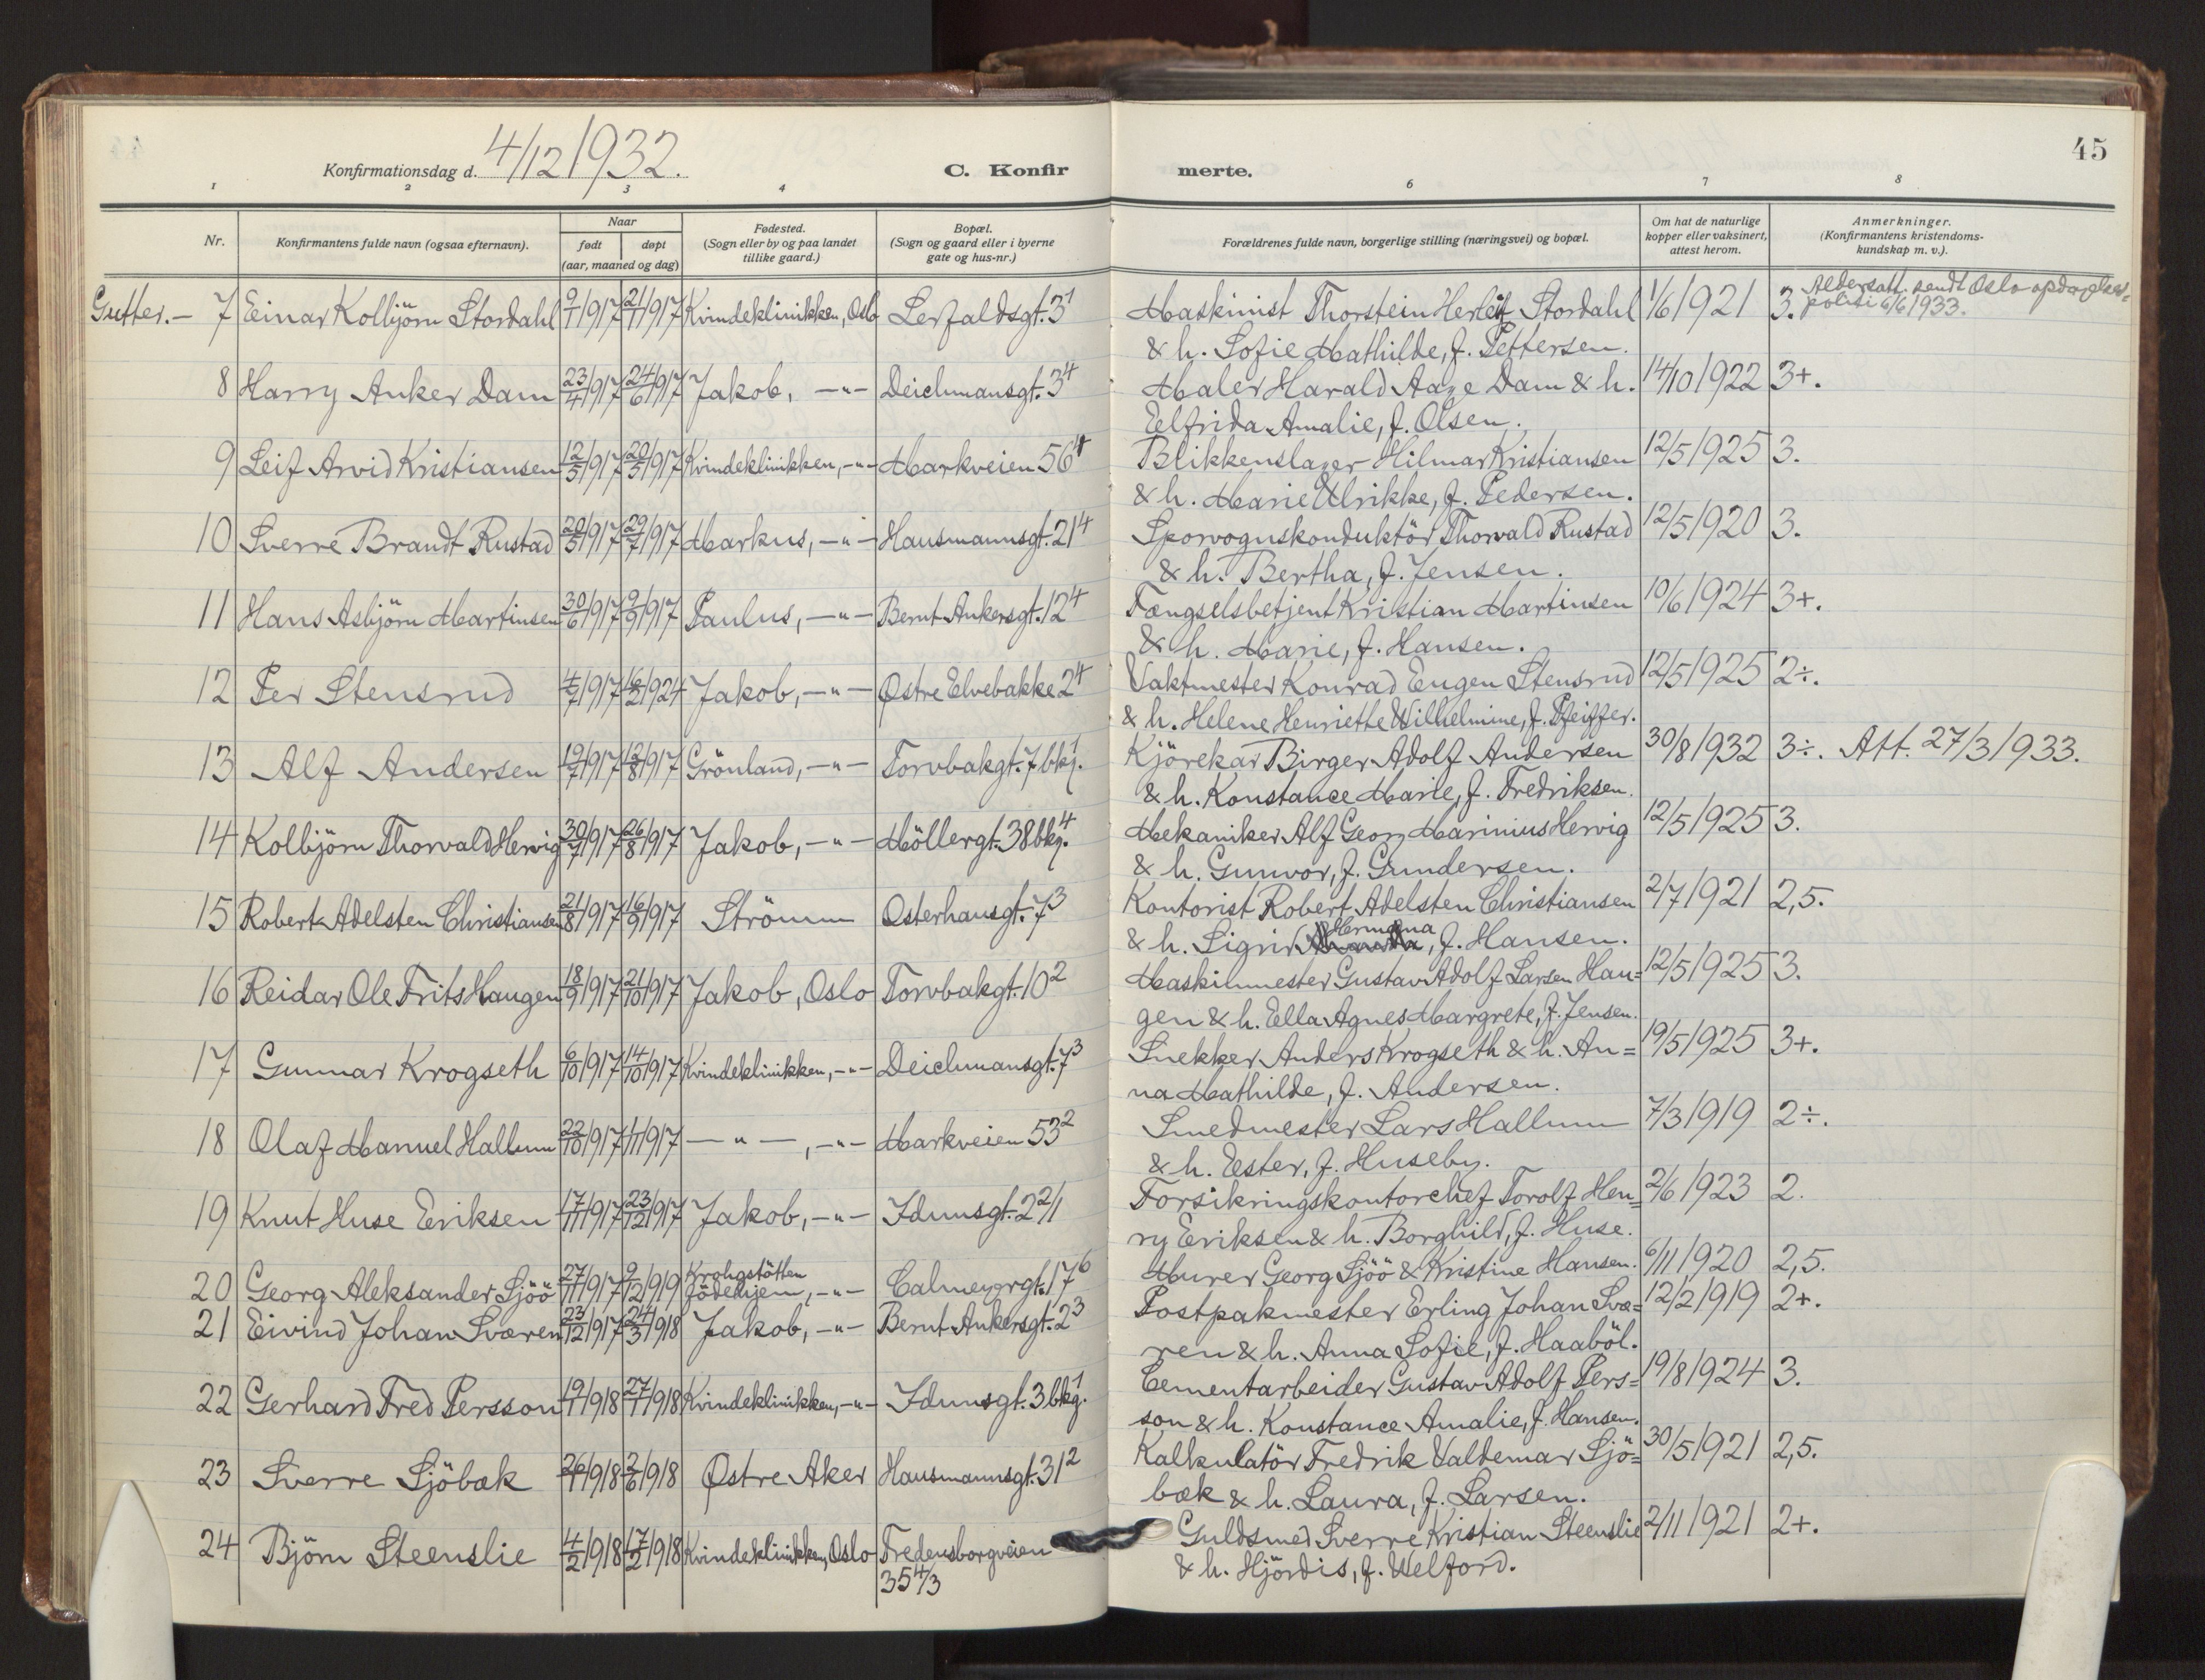 45
Konfirmationsdag d. 4/12 1932. C. Konfir merte.
1 2 3 4 6 7 8
Nr. Konfirmantens fulde navn (ogsaa efternavn). Naar født døpt (aar, maaned og dag) Fødested. (Sogn eller by og paa landet tillike gaard.) Bopæl. (Sogn og gaard eller i byerne gate og hus-nr.) Forældrenes fulde navn, borgerlige stilling (næringsvei) og bopæl. Om hat de naturlige kopper eller vaksinert, attest herom. Anmerkninger. (Konfirmantens kristendoms- kundskap m. v.).
Gutter.- 7 Einar Kolbjörn Stordahl 9/1 1917 21/1 1917 Kvindeklinikken, Oslo Lerfaldsgt. 3¹ Maskinist Thorstein Herleif Stordahl 1/6 1921 3. Aldersatt. sendt Oslo opdagelses=
politi 6/6 1933.
& h. Sofie Mathilde, f. Pettersen.
8 Harry Anker Dam 23/4 1917 24/6 1917 Jakob, -"- Deichmansgt. 3⁴ Maler Harald Aage Dam & h. 14/10 1922 3+.
Elfrida Amalie, f. Olsen.
9 Leif Arvid Kristiansen 12/5 1917 20/5 1917 Kvindeklinikken, -"- Markveien 56⁴ Blikkenslager Hilmar Kristiansen 12/5 1925 3.
& h. Marie Ulrikke, f. Pedersen.
10 Sverre Brandt Rustad 20/5 1917 29/7 1917 Markus, -"- Hausmannsgt. 21⁴ Sporvognskonduktör Thorvald Rustad 12/5 1920 3.
& h. Bertha, f. Jensen.
11 Hans Asbjörn Martinsen 30/6 1917 9/9 1917 Paulus, -"- Bernt Ankersgt. 12⁴ Fængselsbetjent Kristian Martinsen 10/6 1924 3+.
& h. Marie, f. Hansen.
12 Per Stensrud 4/7 1917 16/2 1924 Jakob, -"- Østre Elvebakke 2⁴ Vaktmester Konrad Eugen Stensrud 12/5 1925 2÷.
& h. Helene Henriette Wilhelmine, f. Pfeiffer.
13 Alf Andersen 19/7 1917 12/8 1917 Grönland, -"- Torvbakgt. 7 bkg.¹ Kjörekar Birger Adolf Andersen 30/8 1932 3÷. Att. 27/3 1933.
& h. Konstance Marie, f. Fredriksen.
14 Kolbjörn Thorvald Hervig 30/7 1917 26/8 1917 Jakob, -"- Möllergt. 38 bkg.⁴ Mekaniker Alf Georg Marinius Hervig 12/5 1925 3.
& h. Gunvor, f. Gundersen.
15 Robert Adelsten Christiansen 21/8 1917 16/9 1917 Strömm Osterhausgt. 7³ Kontorist Robert Adelsten Christiansen 2/7 1921 2,5.
& h. Sigrid Hermana, f. Hansen.
16 Reidar Ole Frits Haugen 18/9 1917 21/10 1917 Jakob, Oslo Torvbakgt. 10² Maskinmester Gustav Adolf Larsen Hau= 12/5 1925 3.
gen & h. Ella Agnes Margrete, f. Jensen.
17 Gunnar Krogseth 6/10 1917 14/10 1917 Kvindeklinikken, -"- Deichmansgt. 7³ Snekker Anders Krogseth & h. An= 19/5 1925 3+.
na Mathilde, f. Andersen.
18 Olaf Manuel Hallum 22/10 1917 1/11 1917 -"-, -"- Markveien 53² Smedmester Lars Hallum 7/3 1919 2÷.
& h. Ester, f. Huseby.
19 Knut Huse Eriksen 17/11 1917 23/12 1917 Jakob, -"- Idunsgt. 2²/1 Forsikringskontorchef Torolf Hen= 2/6 1923 2.
ry Eriksen & h. Borghild, f. Huse.
20 Georg Aleksander Sjöö 27/11 1917 9/12 1919 Krohgstötten
födehjem, -"- Calmeyergt. 17⁶ Murer Georg Sjöö & Kristine Hansen. 6/11 1920 2,5.
21 Eivind Johan Sværen 23/12 1917 24/3 1918 Jakob, -"- Bernt Ankersgt. 2³ Postpakmester Erling Johan Svæ= 12/2 1919 2+.
ren & h. Anna Sofie, f. Haaböl.
22 Gerhard Fred Persson 19/1 1918 27/1 1918 Kvindeklinikken, -"- Idunsgt. 3 bkg.¹ Cementarbeider Gustav Adolf Pers= 19/8 1924 3.
son & h. Konstance Amalie, f. Hansen.
23 Sverre Sjöbæk 26/1 1918 2/6 1918 Østre Aker Hausmannsgt. 31² Kalkulatör Fredrik Valdemar Sjö= 30/5 1921 2,5.
bæk & h. Laura, f. Larsen.
24 Björn Steenslie 4/2 1918 17/2 1918 Kvindeklinikken, Oslo Fredensborgveien Guldsmed Sverre Kristian Steenslie 2/11 1921 2+.
35⁴/3 & h. Hjördis, f. Welford.